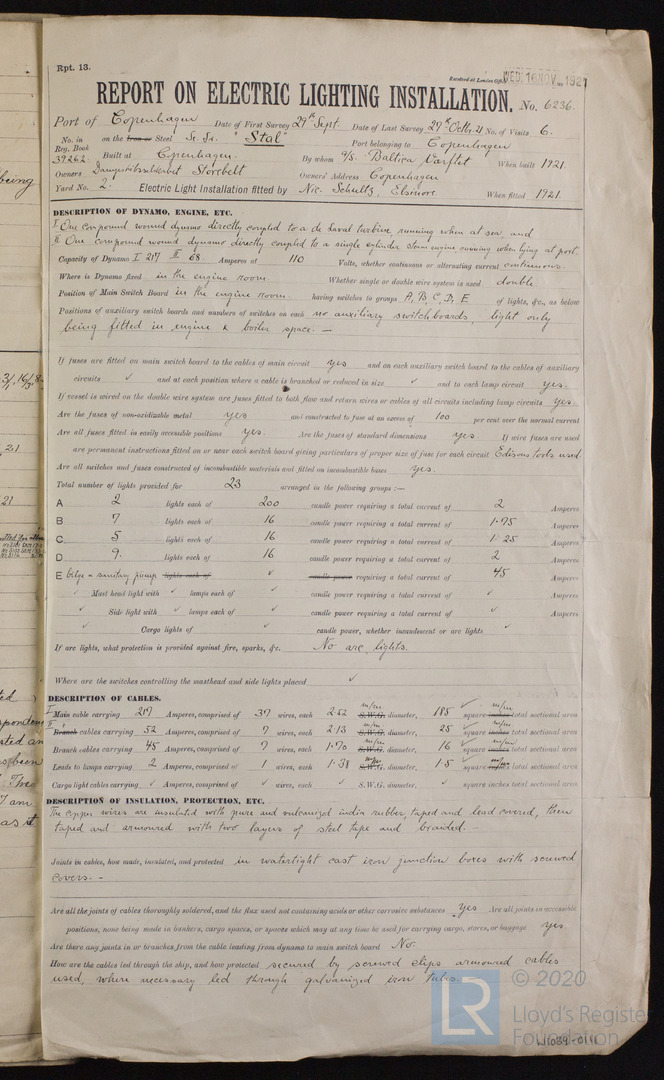 Rpt. 13.
Received at London Office WED. 16 NOV. 1921
REPORT ON ELECTRIC LIGHTING INSTALLATION. No. 6236.
Port of Copenhagen Date of First Survey 27th Sept. Date of Last Survey 29th Octbr. 21 No. of Visits 6.
No. in Reg. Book 39262 on the Iron or Steel Sc. Sr. "Stal" Port belonging to Copenhagen
Built at Copenhagen. By whom A/S. Baltica Værftet When built 1921.
Owners Dampskibsselskabet Storebelt Owners' Address Copenhagen
Yard No. 2. Electric Light Installation fitted by Nic. Schultz, Elsinore When fitted 1921
DESCRIPTION OF DYNAMO, ENGINE, ETC.
I One compound wound dynamo directly coupled to a de Laval turbine running when at sea and
II One compound wound dynamo directly coupled to a single cylinder steam engine running when lying at port.
Capacity of Dynamo I 217 II 68 Amperes at 110 Volts, whether continuous or alternating current continuous.
Where is Dynamo fixed in the engine room Whether single or double wire system is used double
Position of Main Switch Board in the engine room. having switches to groups A, B, C, D, E of lights, &c., as below
Positions of auxiliary switch boards and numbers of switches on each no auxiliary switchboards, light only
being fitted in engine & boiler space. —
If fuses are fitted on main switch board to the cables of main circuit yes and on each auxiliary switch board to the cables of auxiliary
circuits ✓ and at each position where a cable is branched or reduced in size ✓ and to each lamp circuit yes.
If vessel is wired on the double wire system are fuses fitted to both flow and return wires or cables of all circuits including lamp circuits yes.
Are the fuses of non-oxidizable metal yes and constructed to fuse at an excess of 100 per cent over the normal current
Are all fuses fitted in easily accessible positions yes. Are the fuses of standard dimensions yes If wire fuses are used
are permanent instructions fitted on or near each switch board giving particulars of proper size of fuse for each circuit Edisons tools used
Are all switches and fuses constructed of incombustible materials and fitted on incombustible bases yes.
Total number of lights provided for 23 arranged in the following groups :—
A 2 lights each of 200 candle power requiring a total current of 2 Amperes
B 7 lights each of 16 candle power requiring a total current of 1.75 Amperes
C 5 lights each of 16 candle power requiring a total current of 1.25 Amperes
D 9. lights each of 16 candle power requiring a total current of 2 Amperes
E bilge & sanitary pump lights each of ✓ candle power requiring a total current of 45 Amperes
✓ Mast head light with ✓ lamps each of ✓ candle power requiring a total current of ✓ Amperes
✓ Side light with ✓ lamps each of ✓ candle power requiring a total current of ✓ Amperes
✓ Cargo lights of ✓ candle power, whether incandescent or arc lights ✓
If arc lights, what protection is provided against fire, sparks, &c. No arc lights.
Where are the switches controlling the masthead and side lights placed ✓
DESCRIPTION OF CABLES.
I Main cable carrying 217 Amperes, comprised of 37 wires, each 2.52 m/m S.W.G. diameter, 185 square m/m inches total sectional area
II Branch cables carrying 52 Amperes, comprised of 7 wires, each 2.13 m/m S.W.G. diameter, 25 square m/m inches total sectional area
Branch cables carrying 45 Amperes, comprised of 7 wires, each 1.70 m/m S.W.G. diameter, 16 square m/m inches total sectional area
Leads to lamps carrying 2 Amperes, comprised of 1 wires, each 1.38 m/m S.W.G. diameter, 1.5 square m/m inches total sectional area
Cargo light cables carrying ✓ Amperes, comprised of ✓ wires, each ✓ S.W.G. diameter, ✓ square inches total sectional area
DESCRIPTION OF INSULATION, PROTECTION, ETC.
The copper wires are insulated with pure and vulcanized india rubber, taped and lead covered, then
taped and armoured with two layers of steel tape and braided. —
Joints in cables, how made, insulated, and protected in watertight cast iron junction boxes with screwed
covers. —
Are all the joints of cables thoroughly soldered, and the flux used not containing acids or other corrosive substances yes Are all joints in accessible
positions, none being made in bunkers, cargo spaces, or spaces which may at any time be used for carrying cargo, stores, or baggage yes
Are there any joints in or branches from the cable leading from dynamo to main switch board No.
How are the cables led through the ship, and how protected secured by screwed clips armoured cables
used, where necessary led through galvanized iron tubes.
© 2020
LR Lloyd's Register
Foundation
W1039-0141